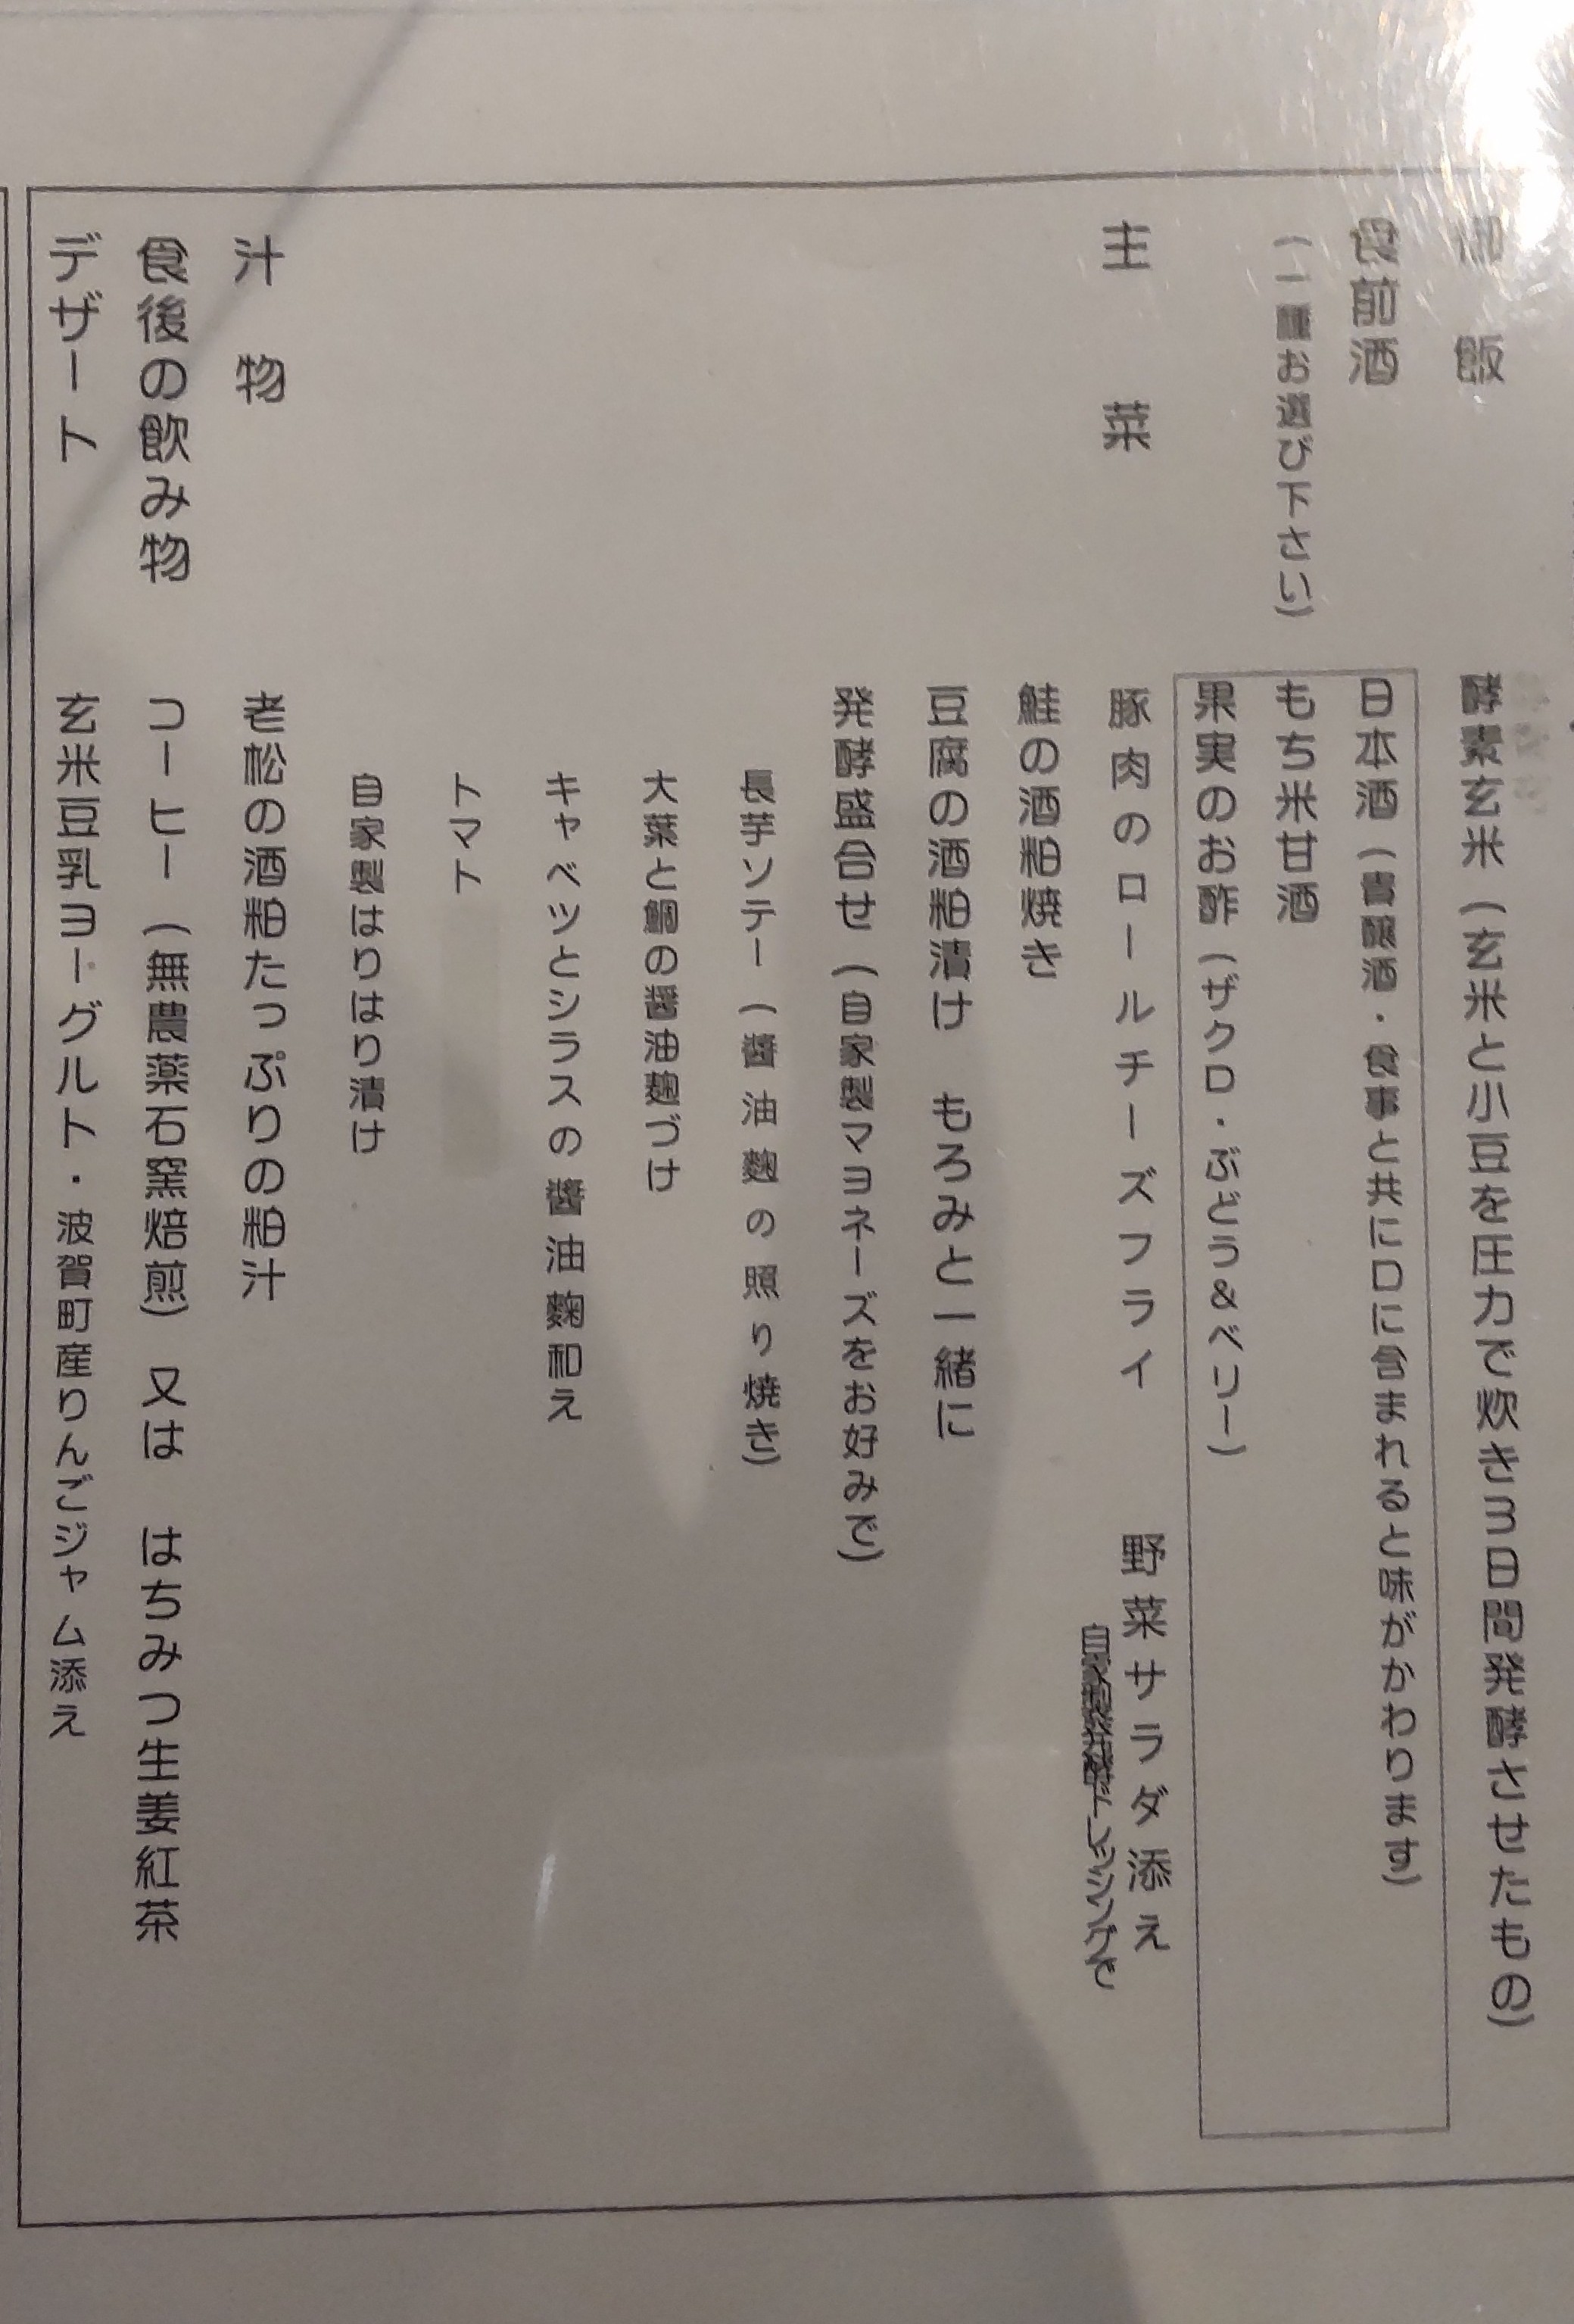 御飯
酵素玄米（玄米と小豆を圧力で炊き3日間発酵させたもの）
食前酒
日本酒（貴醸酒・食事と共に口に含まれると味がかわります）
（一種お選び下さい）
もち米甘酒
果実のお酢（ザクロ・ぶどう&ベリー）
主菜
豚肉のロールチーズフライ 野菜サラダ添え
ドレッシングで
鮭の酒粕焼き
豆腐の酒粕漬け もろみと一緒に
発酵盛合せ（自家製マヨネーズをお好みで）
長芋ソテー（醤油麹の照り焼き）
大葉と鯛の醤油麹づけ
キャベツとシラスの醤油麹和え
トマト
自家製はりはり漬け
汁物
老松の酒粕たっぷりの粕汁
食後の飲み物
コーヒー（無農薬石窯焙煎）又は はちみつ生姜紅茶
デザート
玄米豆乳ヨーグルト・波賀町産りんごジャム添え